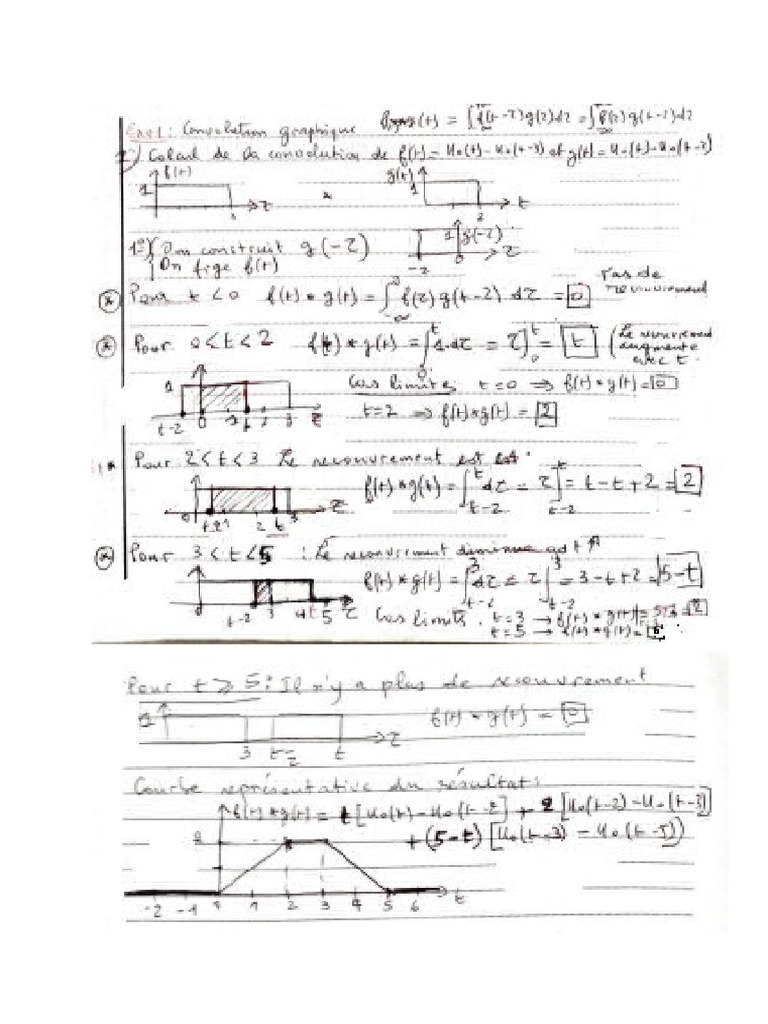 Exo1: Convolution graphique f(t)*g(t) = ∫f(t-τ)g(τ)dτ = ∫f(τ)g(t-τ)dτ
1) Calcul de la convolution de f(t) = u₀(t) - u₀(t-3) et g(t) = u₀(t) - u₀(t-2)
f(t) g(t)
1 3 τ * 1 2 t
1°) On construit g(-τ) 1 g(-τ)
On fige f(t) -2 0 τ
Pas de recouvrement
Pour t < 0 f(t) * g(t) = ∫f(τ)g(t-τ) dτ = 0
Pour 0 < t < 2 f(t) * g(t) = ∫₀ᵗ 1.dτ = τ]₀ᵗ = t (Le recouvrement augmente avec t.
1 Cas limite: t=0 ⇒ f(t)*g(t) = 0
t-2 0 t 2 3 τ t=2 ⇒ f(t)*g(t) = 2
Pour 2 < t < 3 Le recouvrement est
f(t)*g(t) = ∫ dτ = τ] = t-t+2 = 2
0 t-2 2 t 3 τ
Pour 3 < t < 5 : Le recouvrement diminue
f(t) * g(t) = ∫ dτ = τ| = 3-t+2 = 5-t
0 t-2 3 4 t 5 τ Cas limite. t=3 → f(t) * g(t) = 5-3 = 2
t=5 → f(t)*g(t) =
Pour t ⩾ 5: Il n'y a plus de recouvrement
1 3 t-2 t τ f(t) * g(t) = 0
Courbe représentative du résultat:
f(t) * g(t) = t[u₀(t) - u₀(t-2)] + 2[u₀(t-2) - u₀(t-3)]
+ (5-t) [u₀(t-3) - u₀(t-5)]
2
-2 -1 1 2 3 4 5 6 t